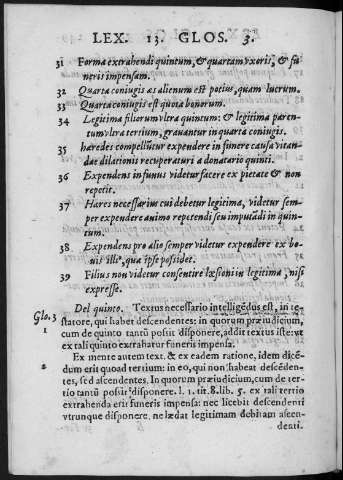 LEX. 13. GLOS. 3.
31 Forma extrahendi quintum, & quartam vxoris, & fu
neris impensam.
32 Quarta coniugis æs alienum est potius, quam lucrum.
33 Quarta coniugis est quota bonorum.
34 Legitima filiorum vltra quintum: & legitima paren-
tum vltra tertium, grauantur in quarta coniugis.
35 hæredes compellūtur expendere in funere causa vitan-
dæ dilationis recuperaturi a donatario quinti.
36 Expendens in funus videtur facere ex pietate & non
repetit.
37 Hæres necessarius cui debetur legitima, videtur sem-
per expendere animo repetendi seu imputādi in quin-
tum.
38 Expendens pro alio semper videtur expendere ex bo-
nis illiᵒ, quæ ipse possidet.
39 Filius non videtur consentire læsioni in legitima, nisi
expresse.
Glo. 3 Del quinto. Textus necessario intelligēdus est, in te-
1 statore, qui habet descendentes: in quorum præiudicium,
cum de quinto tantū possit disponere, addit textus iste: vt
ex tali quinto extrahatur funeris impensa.
2 Ex mente autem text. & ex eadem ratione, idem dicē-
dum erit quoad tertium: in eo, qui non habeat descēden-
tes, sed ascendentes. In quorum præiudicium, cum de ter-
tio tantū possit disponere. l. 1. tit. 8. lib. 5. ex tali tertio
extrahenda erit funeris impensa: nec licebit descendenti
vtrunque disponere, ne lædat legitimam debitam ascen-
denti.